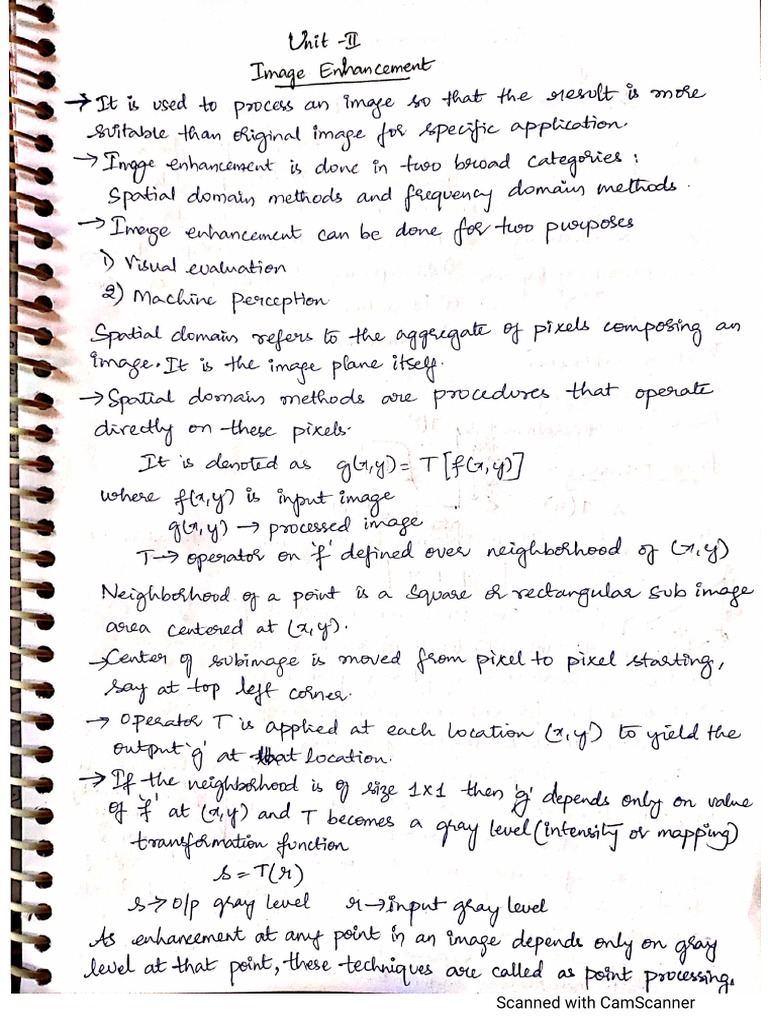 Unit -II
Image Enhancement
→ It is used to process an image so that the result is more
suitable than original image for specific application.
→ Image enhancement is done in two broad categories :
Spatial domain methods and frequency domain methods.
→ Image enhancement can be done for two purposes
1) Visual evaluation
2) Machine perception
Spatial domain refers to the aggregate of pixels composing an
image. It is the image plane itself.
→ Spatial domain methods are procedures that operate
directly on these pixels.
It is denoted as g(x,y) = T[f(x,y)]
where f(x,y) is input image
g(x,y) → processed image
T → operator on 'f' defined over neighborhood of (x,y)
Neighborhood of a point is a square or rectangular sub image
area centered at (x,y).
→ Center of subimage is moved from pixel to pixel starting,
say at top left corner.
→ Operator T is applied at each location (x,y) to yield the
output 'g' at that location.
→ If the neighborhood is of size 1x1 then 'g' depends only on value
of 'f' at (x,y) and T becomes a gray level (intensity or mapping)
transformation function
s = T(r)
s → o/p gray level r → input gray level
As enhancement at any point in an image depends only on gray
level at that point, these techniques are called as point processing.
Scanned with CamScanner